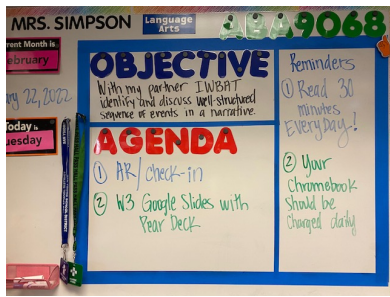 MRS. SIMPSON
Language
Arts
ABA9068
rent Month is
ebruary
ry 22, 2022
Today is
uesday
OBJECTIVE
With my partner IWBAT
identify and discuss well-structured
sequence of events in a narrative.
AGENDA
① AR/check-in
② W3 Google Slides with
Pear Deck
Reminders
① Read 30
minutes
EVERYDay!
② Your
Chromebook
should be
Charged daily